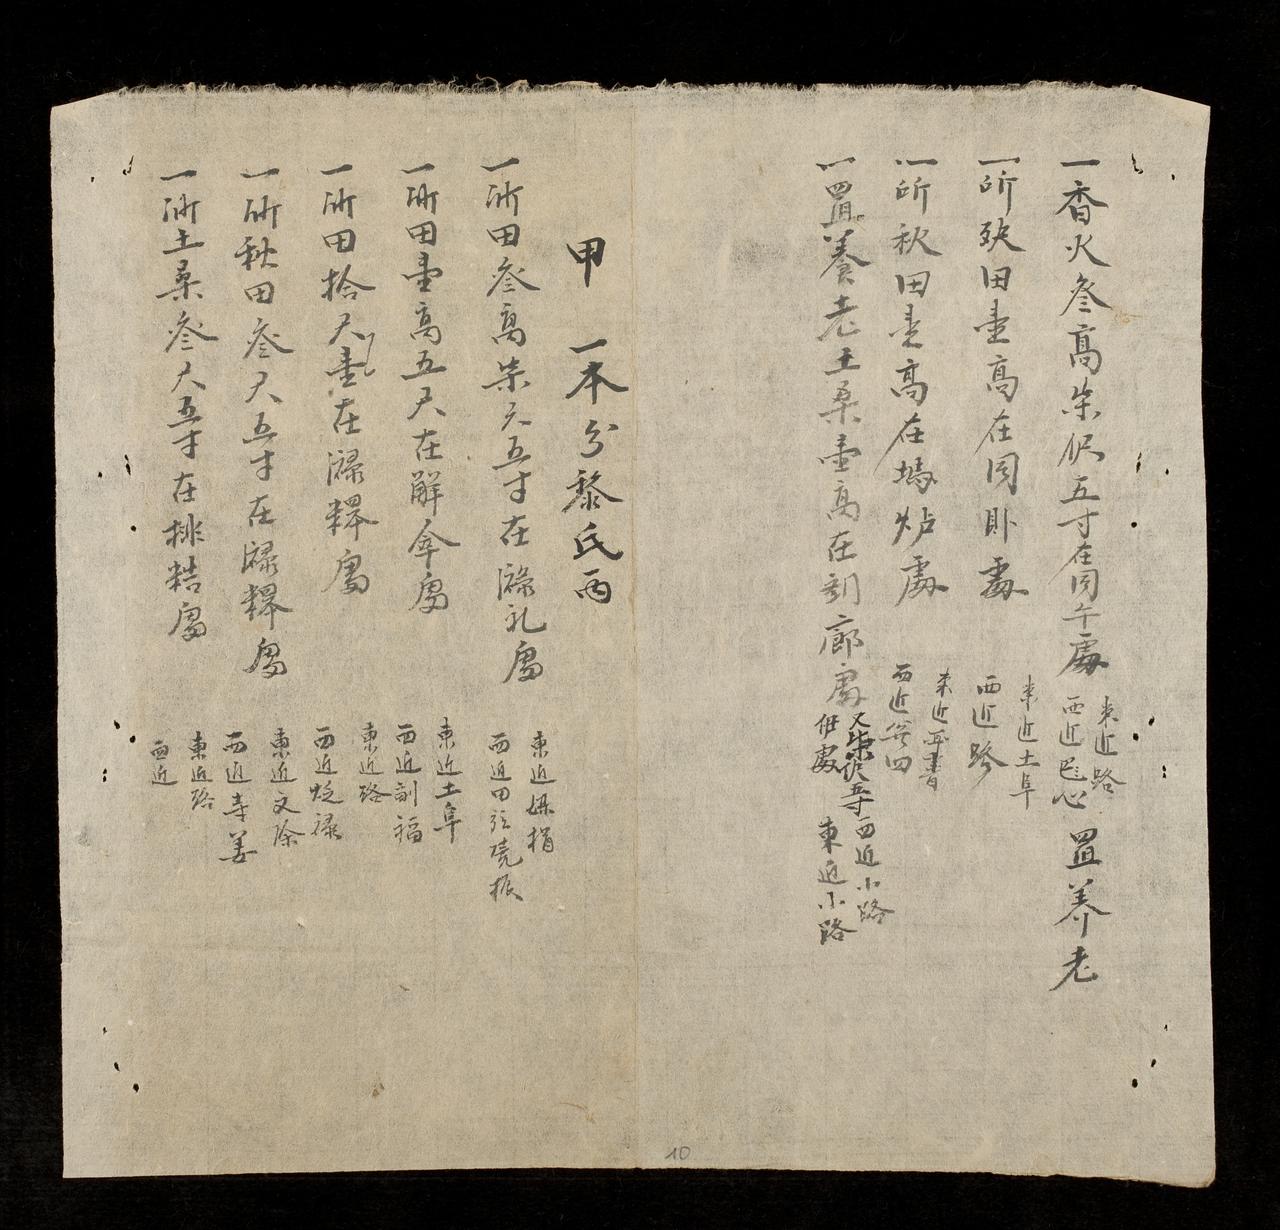 一香火叁高柒尺五寸在同午處
東近路
西近 心
置养老
一所 田壹高在同卧處
東近土阜
西近路
一所秋田壹高在塢炉處
東近 書
西近 四
一置養老土桑壹高在 廊處
尺柒 五寸西近小路
處東近小路
甲 一本分黎氏両
一所田叁高柒尺五寸在 礼處
東近 捐
西近田 喨振
一所田壹高五尺在解傘處
東近土阜
西近訓福
一所田拾尺壹在 處
東近路
西近 禄
一所秋田叁尺五寸在 處
東近文除
西近寺姜
一所土桑叁尺五寸在排 處
東近路
西近
10